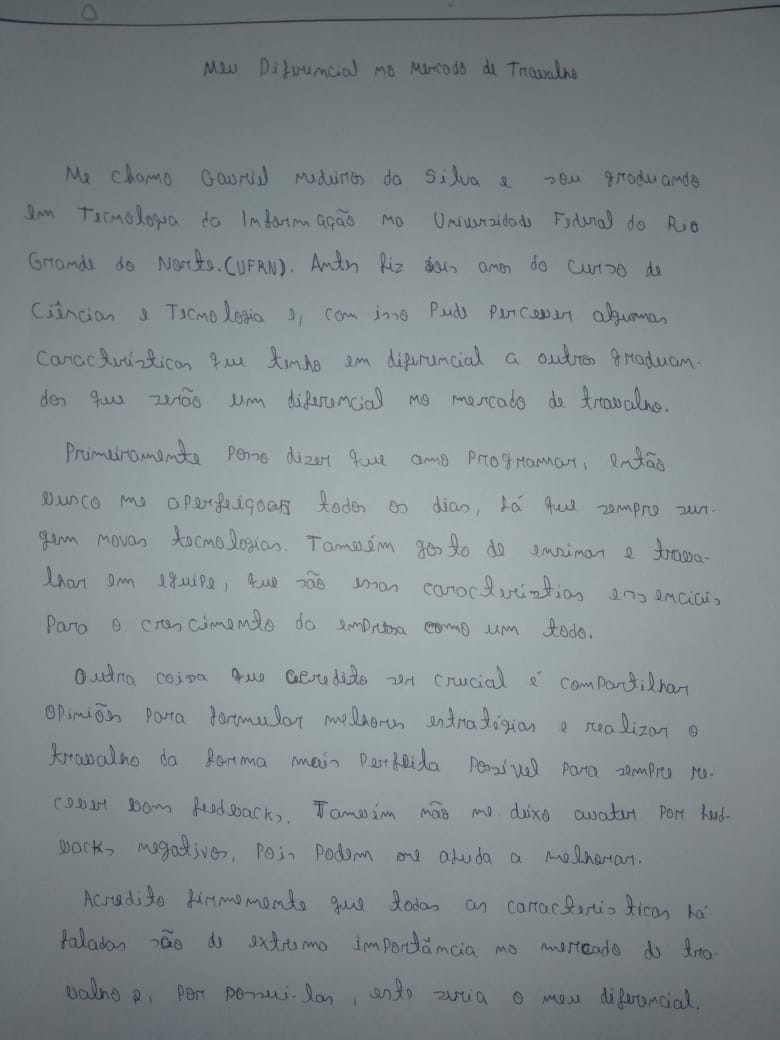 Meu Diferencial no Mercado de Trabalho
Me chamo Gabriel Medeiros da Silva e sou graduando
em Tecnologia da Informação na Universidade Federal do Rio
Grande do Norte. (UFRN). Antes fiz dois anos do curso de
Ciências e Tecnologia e, com isso pude perceber algumas
características que tenho em diferencial a outros graduan-
dos que serão um diferencial no mercado de trabalho.
Primeiramente posso dizer que amo programar, então
busco me aperfeiçoar todos os dias, já que sempre sur-
gem novas tecnologias. Também gosto de ensinar e traba-
lhar em equipe, que são essas caracteristias essenciais
para o crescimento da empresa como um todo.
Outra coisa que acredito ser crucial é compartilhar
opiniões para formular melhores estratégias e realizar o
trabalho da forma mais perfeita possível para sempre re-
ceber bons feedbacks. Também não me deixo abater por feed-
backs negativos, pois podem me ajuda a melhorar.
Acredito firmemente que todas as características já
faladas são de extremo importância no mercado de tra-
balho e, por possui-las, este seria o meu diferencial.